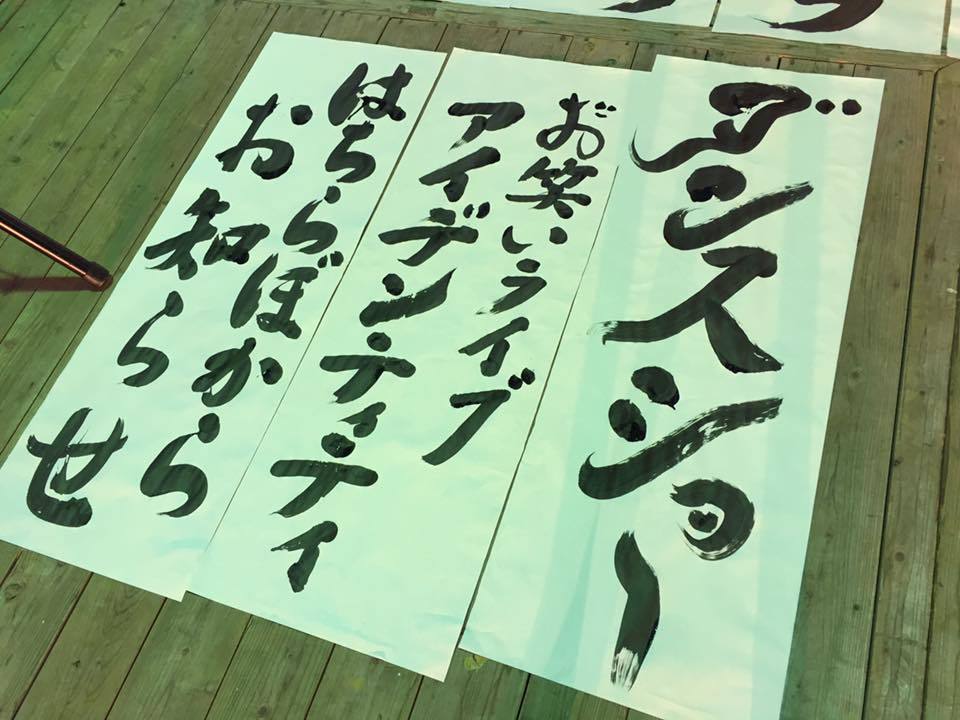 ダンスショー
お笑いライブ
アイデンティティ
はちらぼから
お知らせ